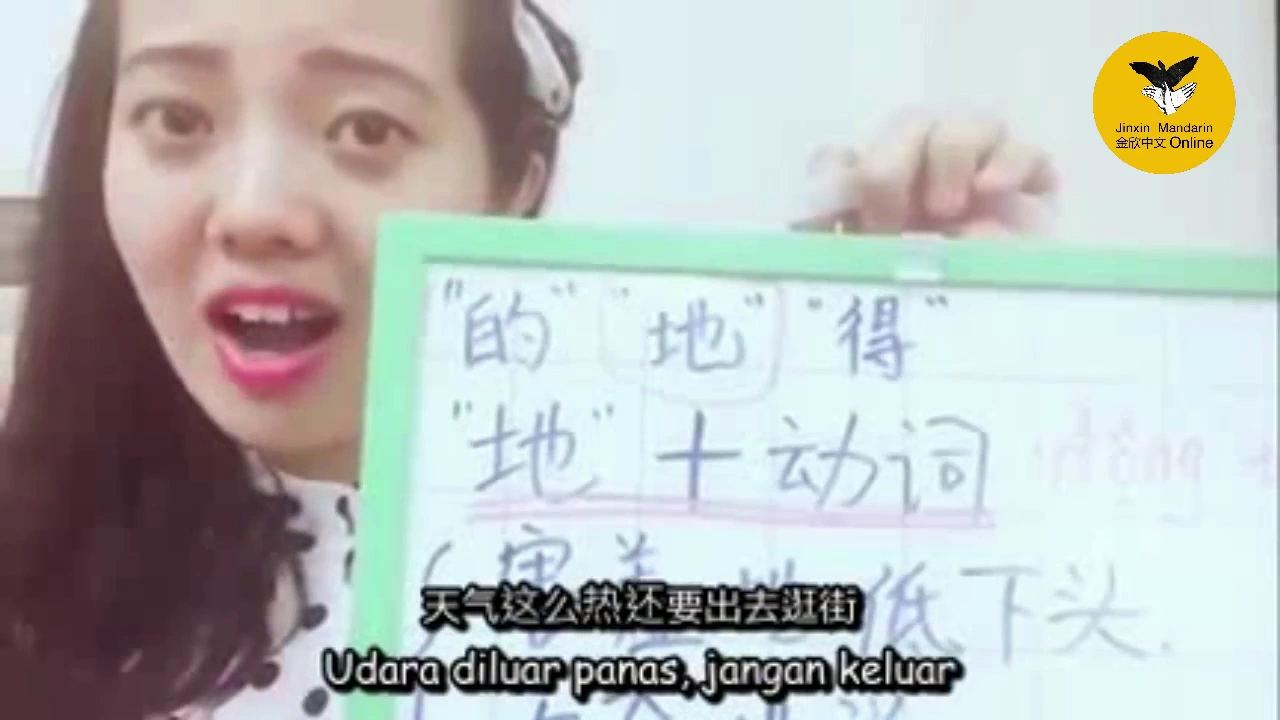 Jinxin Mandarin
金欣中文 Online
"的" "地" "得"
"地" + 动词
害羞地低下头.
天气这么热还要出去逛街
Udara diluar panas, jangan keluar